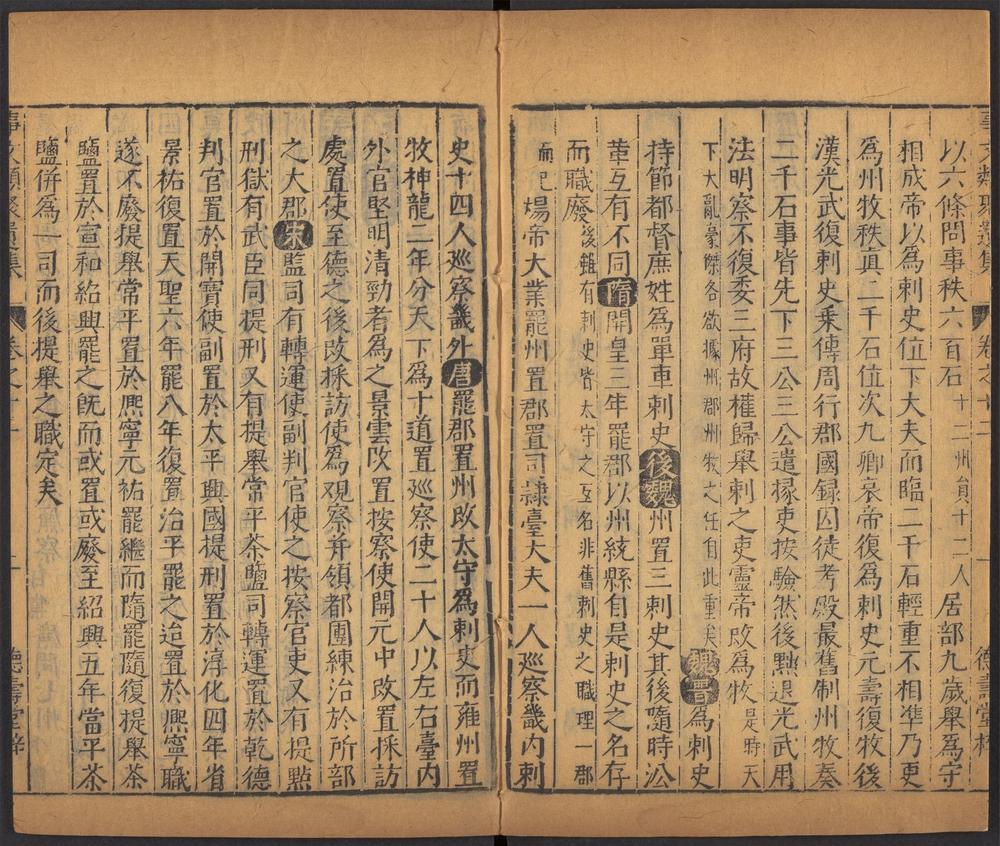 事文類聚遺集　卷之十二　一　德壽堂梓
以六條問事秩六百石十二州員十二人居部九歲舉爲守
相成帝以爲刺史位下大夫而臨二千石輕重不相準乃更
爲州牧秩真二千石位次九卿哀帝復爲刺史元壽復牧後
漢光武復刺史乘傳周行郡國録囚徒考殿最舊制州牧奏
二千石事皆先下三公三公遣掾吏按驗然後黜退光武用
法明察不復委三府故權歸舉刺之吏靈帝改爲牧是時天
下大亂豪傑各欲據州郡州牧之任自此重矣魏晉爲刺史
持節都督庶姓爲單車刺史後魏州置三刺史其後隨時㳂
革互有不同隋開皇三年罷郡以州統縣自是刺史之名存
而職廢後雖有刺史皆太守之互名非舊刺史之職理一郡
而已煬帝大業罷州置郡置司隷臺大夫一人巡察畿内刺
史十四人巡察畿外唐罷郡置州改太守爲刺史而雍州置
牧神龍二年分天下爲十道置巡察使二十人以左右臺内
外官堅明清勁者爲之景雲改置按察使開元中改置採訪
處置使至德之後改採訪使爲观察并領都團練治於所部
之大郡宋監司有轉運使副判官使之按察官吏又有提㸃
刑獄有武臣同提刑又有提舉常平茶鹽司轉運置於乾德
判官置於開寶使副置於太平興國提刑置於淳化四年省
景祐復置天聖六年罷八年復置治平罷之迨置於熈寧職
遂不廢提舉常平置於熈寧元祐罷繼而隨罷隨復提舉茶
鹽置於宣和紹興罷之旣而或置或廢至紹興五年當平茶
鹽併爲一司而後提舉之職定矣
事文類聚遺集　卷之十二　一　德壽堂梓